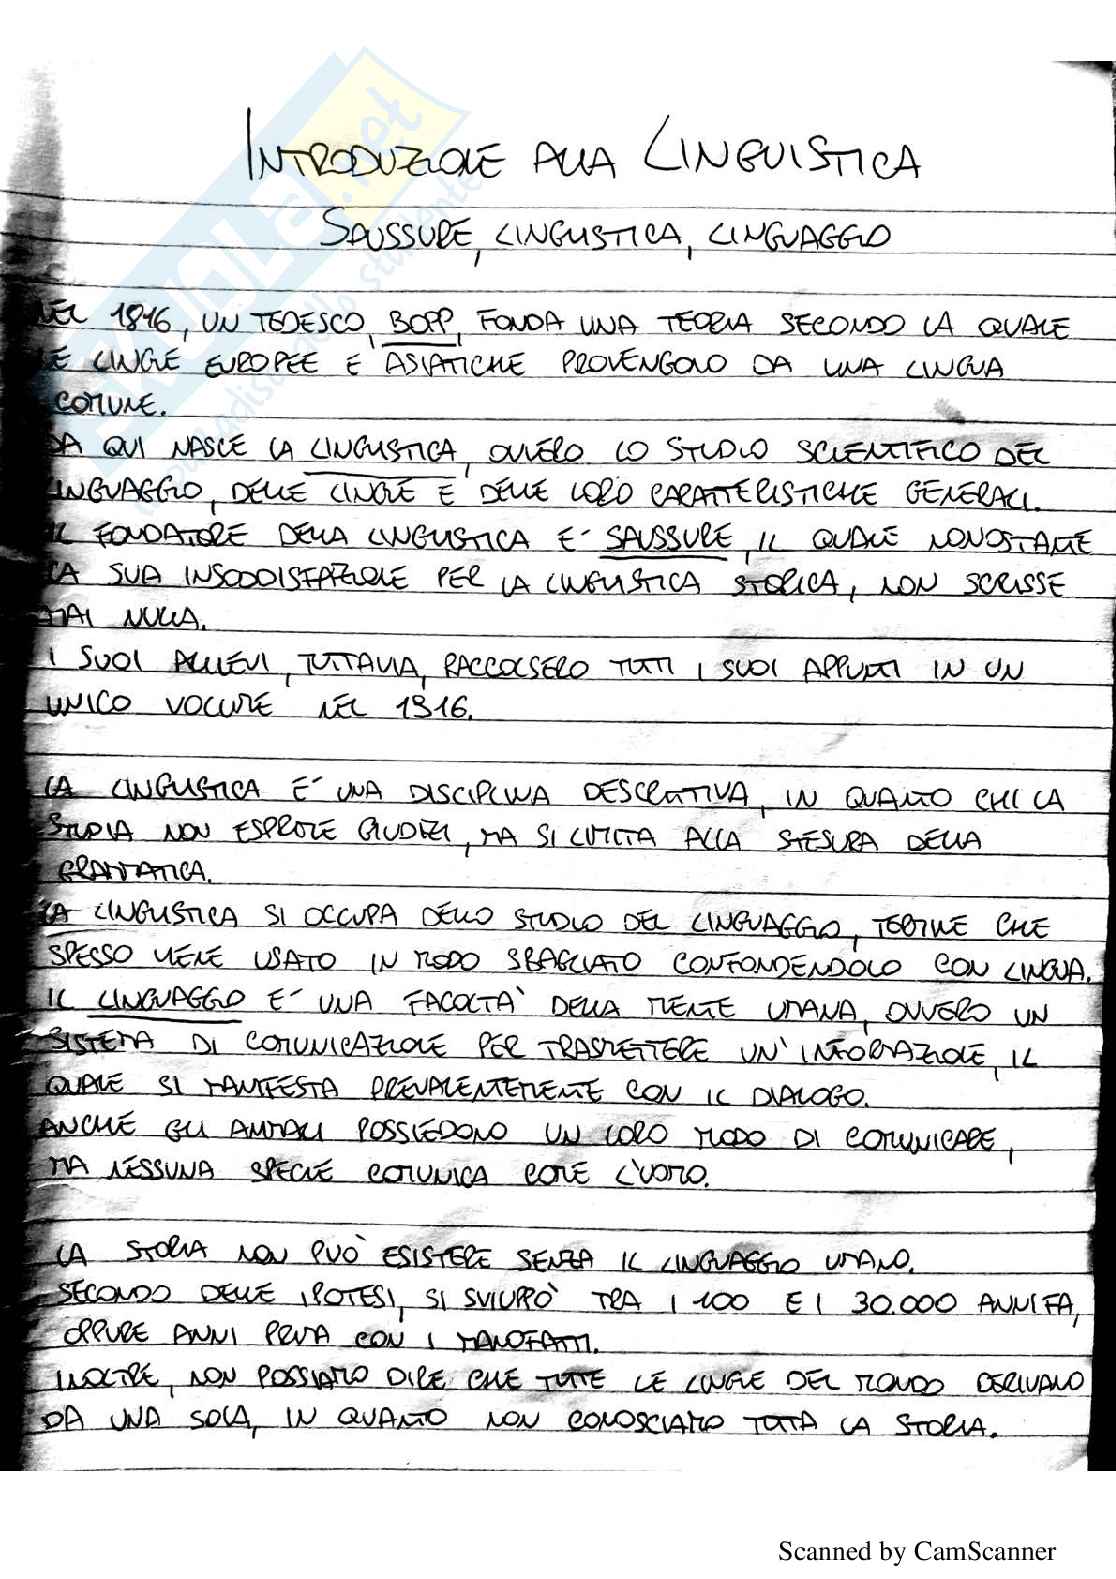 INTRODUZIONE ALLA LINGUISTICA
SAUSSURE, LINGUISTICA, LINGUAGGIO
NEL 1816, UN TEDESCO, BOPP, FONDA UNA TEORIA SECONDO LA QUALE
LE LINGUE EUROPEE E ASIATICHE PROVENGONO DA UNA LINGUA
COMUNE.
DA QUI NASCE LA LINGUISTICA, OVVERO LO STUDIO SCIENTIFICO DEL
LINGUAGGIO, DELLE LINGUE E DELLE LORO CARATTERISTICHE GENERALI.
IL FONDATORE DELLA LINGUISTICA E' SAUSSURE, IL QUALE NONOSTANTE
LA SUA INSODDISFAZIONE PER LA LINGUISTICA STORICA, NON SCRISSE
MAI NULLA.
I SUOI ALLIEVI, TUTTAVIA, RACCOLSERO TUTTI I SUOI APPUNTI IN UN
UNICO VOLUME NEL 1916.
LA LINGUISTICA E' UNA DISCIPLINA DESCRITTIVA, IN QUANTO CHI LA
STUDIA NON ESPRIME GIUDIZI, MA SI LIMITA ALLA STESURA DELLA
GRAMMATICA.
LA LINGUISTICA SI OCCUPA DELLO STUDIO DEL LINGUAGGIO, TERMINE CHE
SPESSO VIENE USATO IN MODO SBAGLIATO CONFONDENDOLO CON LINGUA.
IL LINGUAGGIO E' UNA FACOLTA' DELLA MENTE UMANA, OVVERO UN
SISTEMA DI COMUNICAZIONE PER TRASMETTERE UN'INFORMAZIONE, IL
QUALE SI MANIFESTA PREVALENTEMENTE CON IL DIALOGO.
ANCHE GLI ANIMALI POSSIEDONO UN LORO MODO DI COMUNICARE,
MA NESSUNA SPECIE COMUNICA COME L'UOMO.
LA STORIA NON PUO' ESISTERE SENZA IL LINGUAGGIO UMANO.
SECONDO DELLE IPOTESI, SI SVILUPPO' TRA I 100 E I 30.000 ANNI FA,
OPPURE ANNI PRIMA CON I MANUFATTI.
INOLTRE, NON POSSIAMO DIRE CHE TUTTE LE LINGUE DEL MONDO DERIVANO
DA UNA SOLA, IN QUANTO NON CONOSCIAMO TUTTA LA STORIA.
Scanned by CamScanner